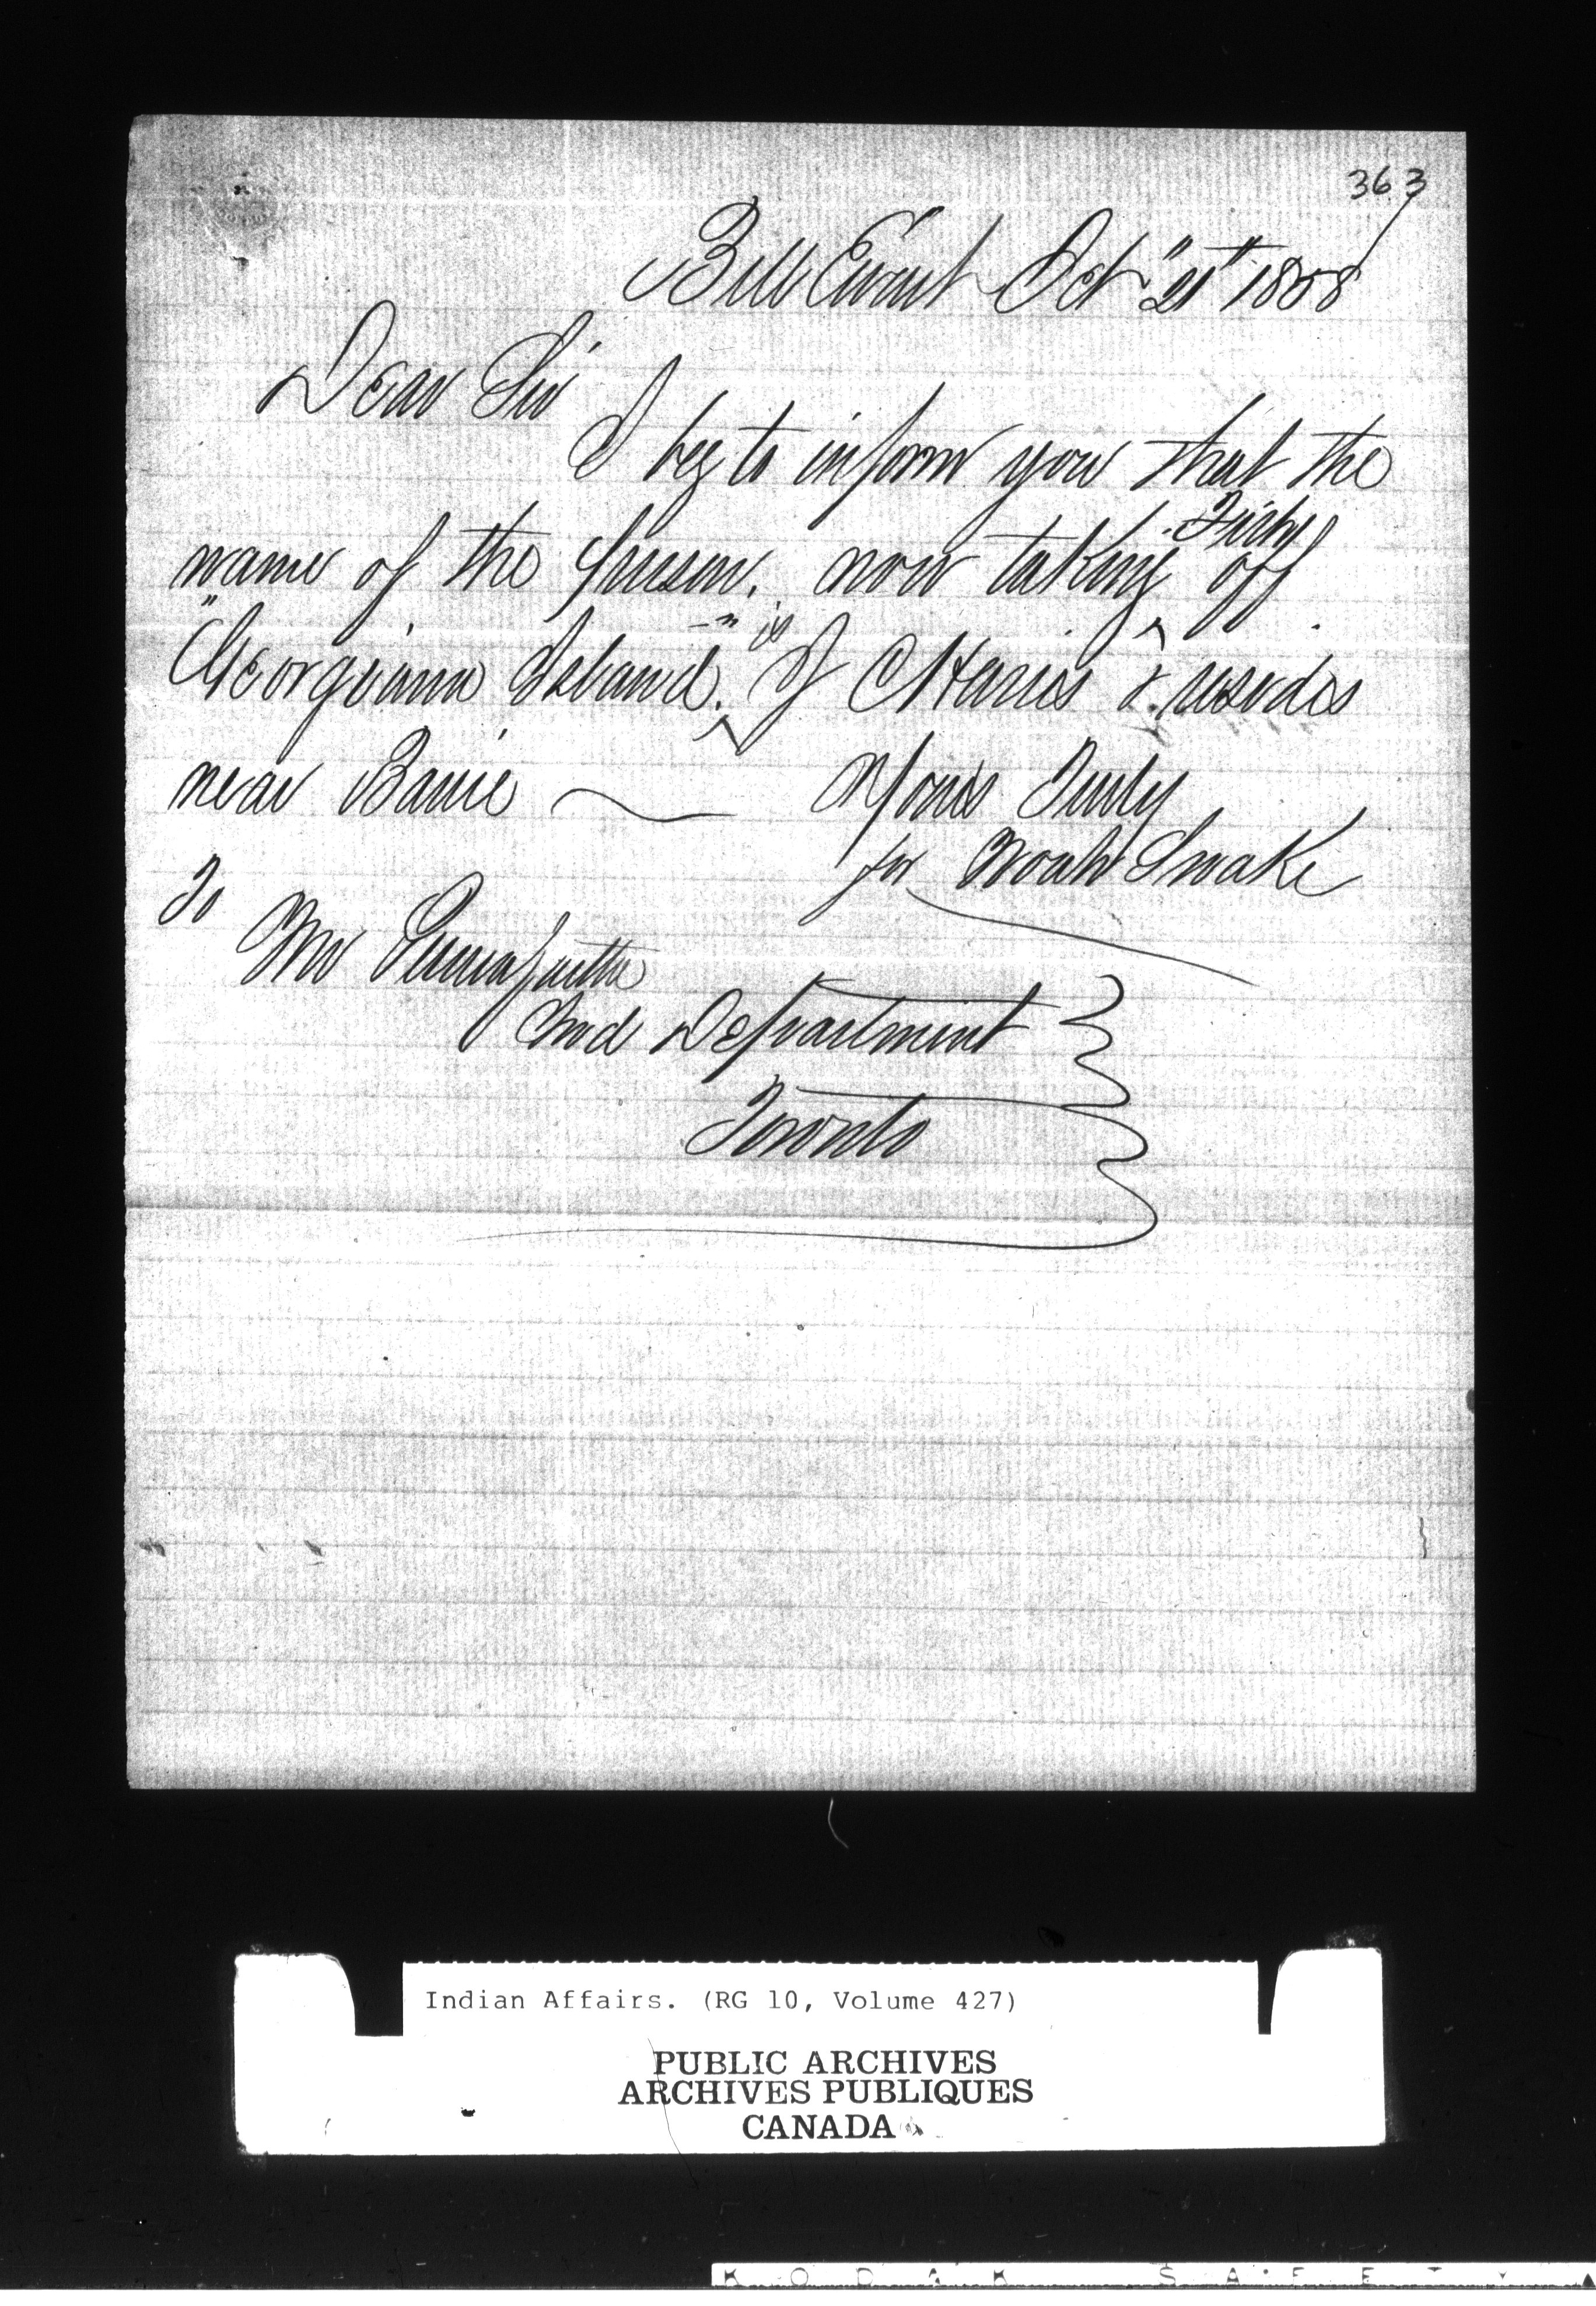 363
Bell Ewart Oct "21st" 1858
Dear Sir
I beg to inform you that the
name of the person. now taking Timber off
"Georgiana Island." is J C Harris & resides
near Barrie
Yours Truly
for Noah Snake
To
Mr Pennefather
Ind Department
Toronto
Indian Affairs. (RG 10, Volume 427)
PUBLIC ARCHIVES
ARCHIVES PUBLIQUES
CANADA
KODAK SAFETY